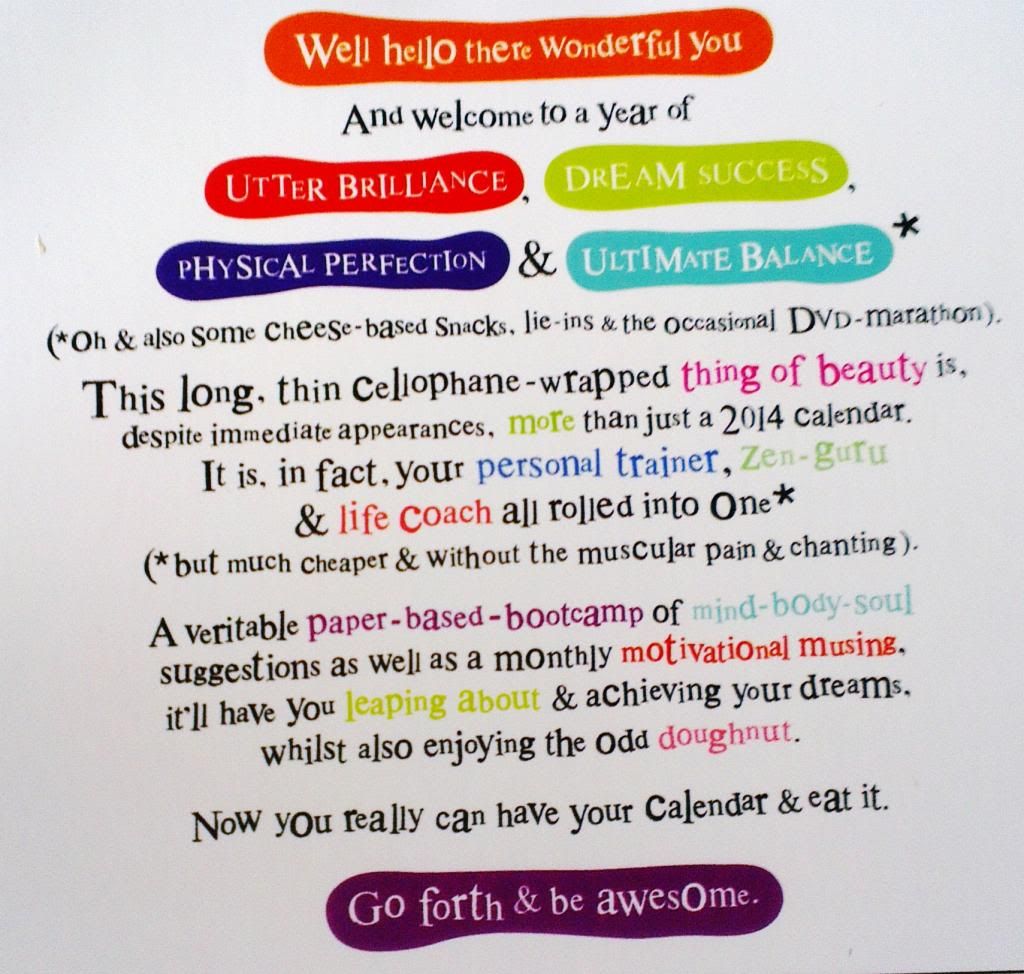 Well hello there wonderful you
And welcome to a year of
UTTER BRILLIANCE, DREAM SUCCESS,
PHYSICAL PERFECTION & ULTIMATE BALANCE*
(*Oh & also some cheese-based snacks, lie-ins & the occasional DVD-marathon).
This long, thin cellophane-wrapped thing of beauty is,
despite immediate appearances, more than just a 2014 calendar.
It is, in fact, your personal trainer, Zen-guru
& life coach all rolled into one*
(*but much cheaper & without the muscular pain & chanting).
A veritable paper-based-bootcamp of mind-body-soul
suggestions as well as a monthly motivational musing,
it'll have you leaping about & achieving your dreams,
whilst also enjoying the odd doughnut.
Now you really can have your calendar & eat it.
Go forth & be awesome.